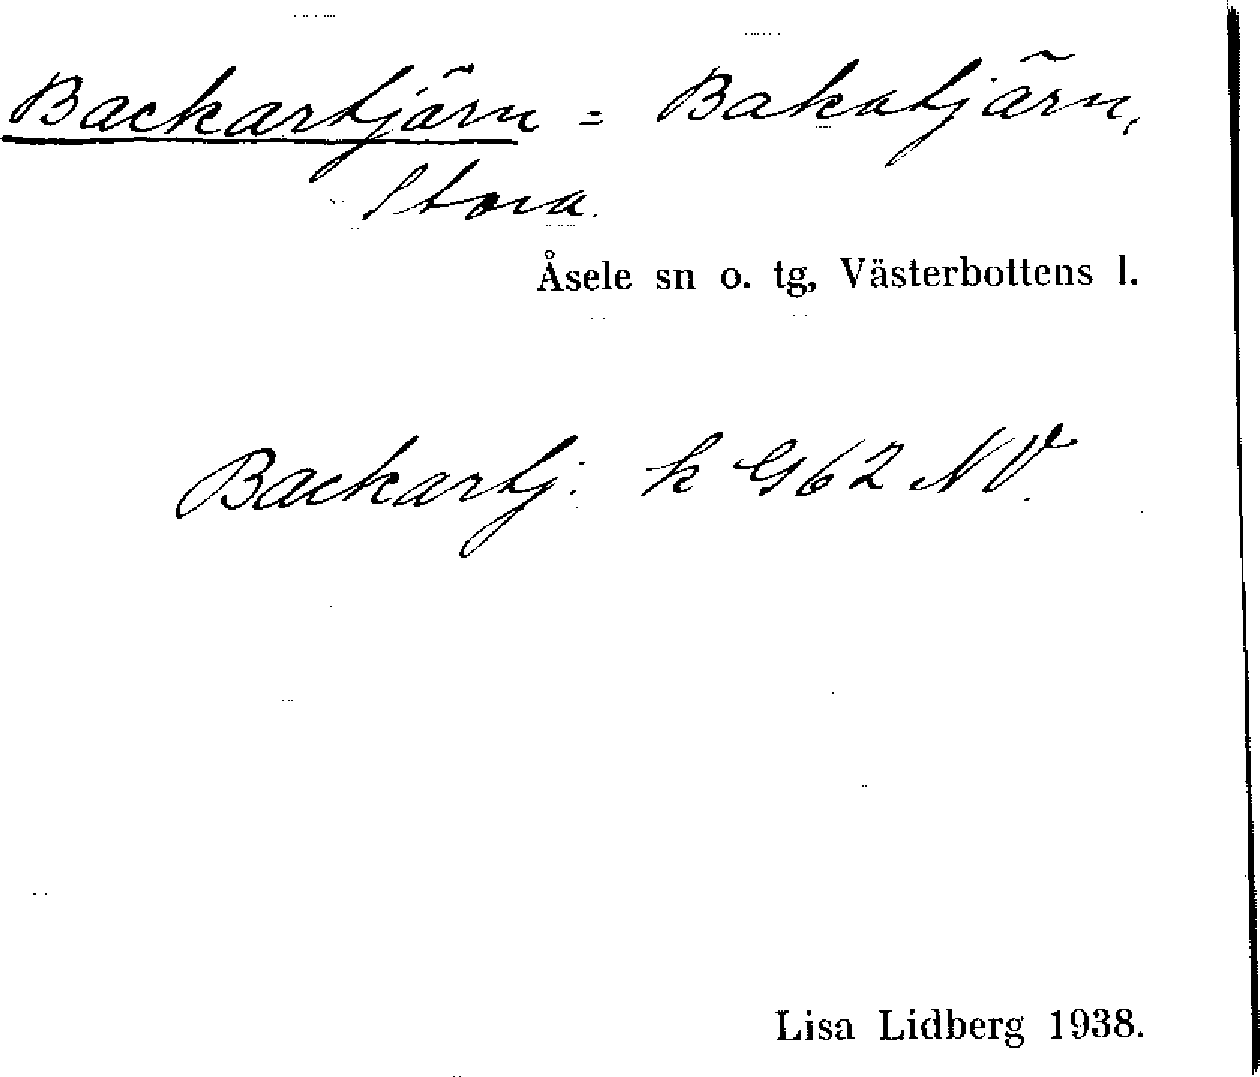 Backartjärn = Bakatjärn,
Stora.
Åsele sn o. tg, Västerbottens l.
Backartj: k G62 NV.
Lisa Lidberg 1938.